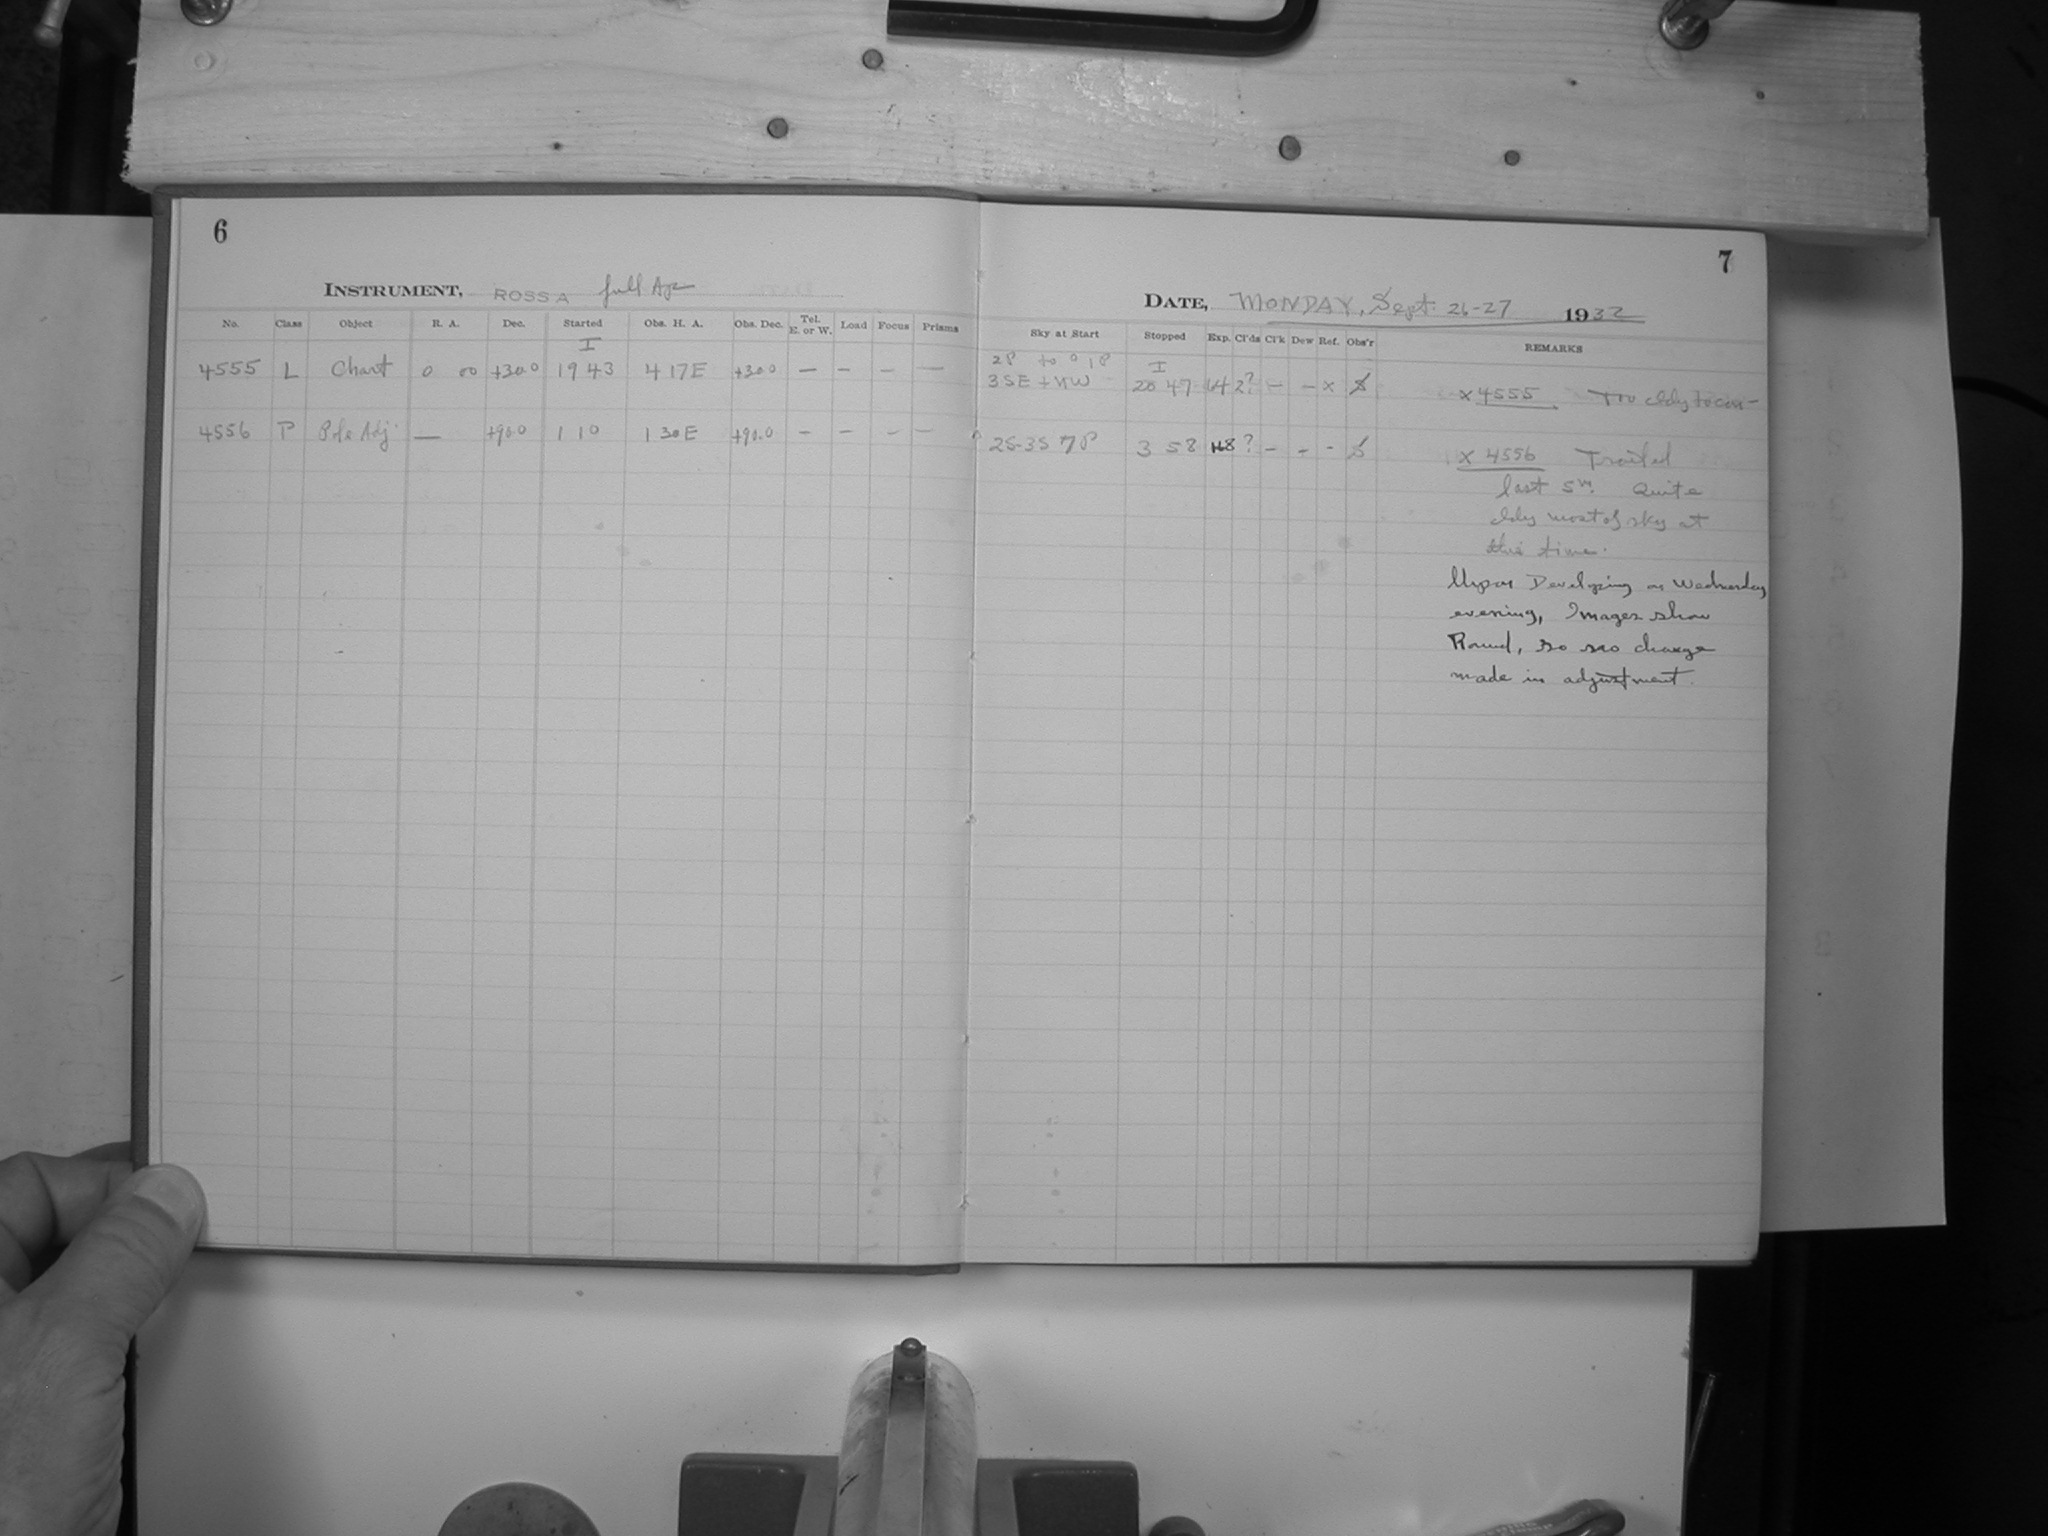 6
INSTRUMENT, ROSS A full Ap
No. Class Object R. A. Dec. Started Obs. H. A. Obs. Dec. Tel. E. or W. Load Focus Prisms
I
4555 L Chart 0 00 +30.0 19 43 4 17E +30.0 — — — —
4556 P Pole Adj. — +90.0 1 10 1 30E +90.0 — — — —
7
DATE, MONDAY, Sept. 26-27 1932
Sky at Start Stopped Exp. Cl'ds Cl'k Dew Ref. Obs'r REMARKS
2P to 1P I
3SE + NW 20 47 64 2? — — x S x 4555 Too cldy to con-
2S-3S 7P 3 58 168 ? — — - S x 4556 Trailed
last 5m. Quite
cldy most of sky at
this time.
Upon Developing on Wednesday
evening, Images show
Round, so no change
made in adjustment.